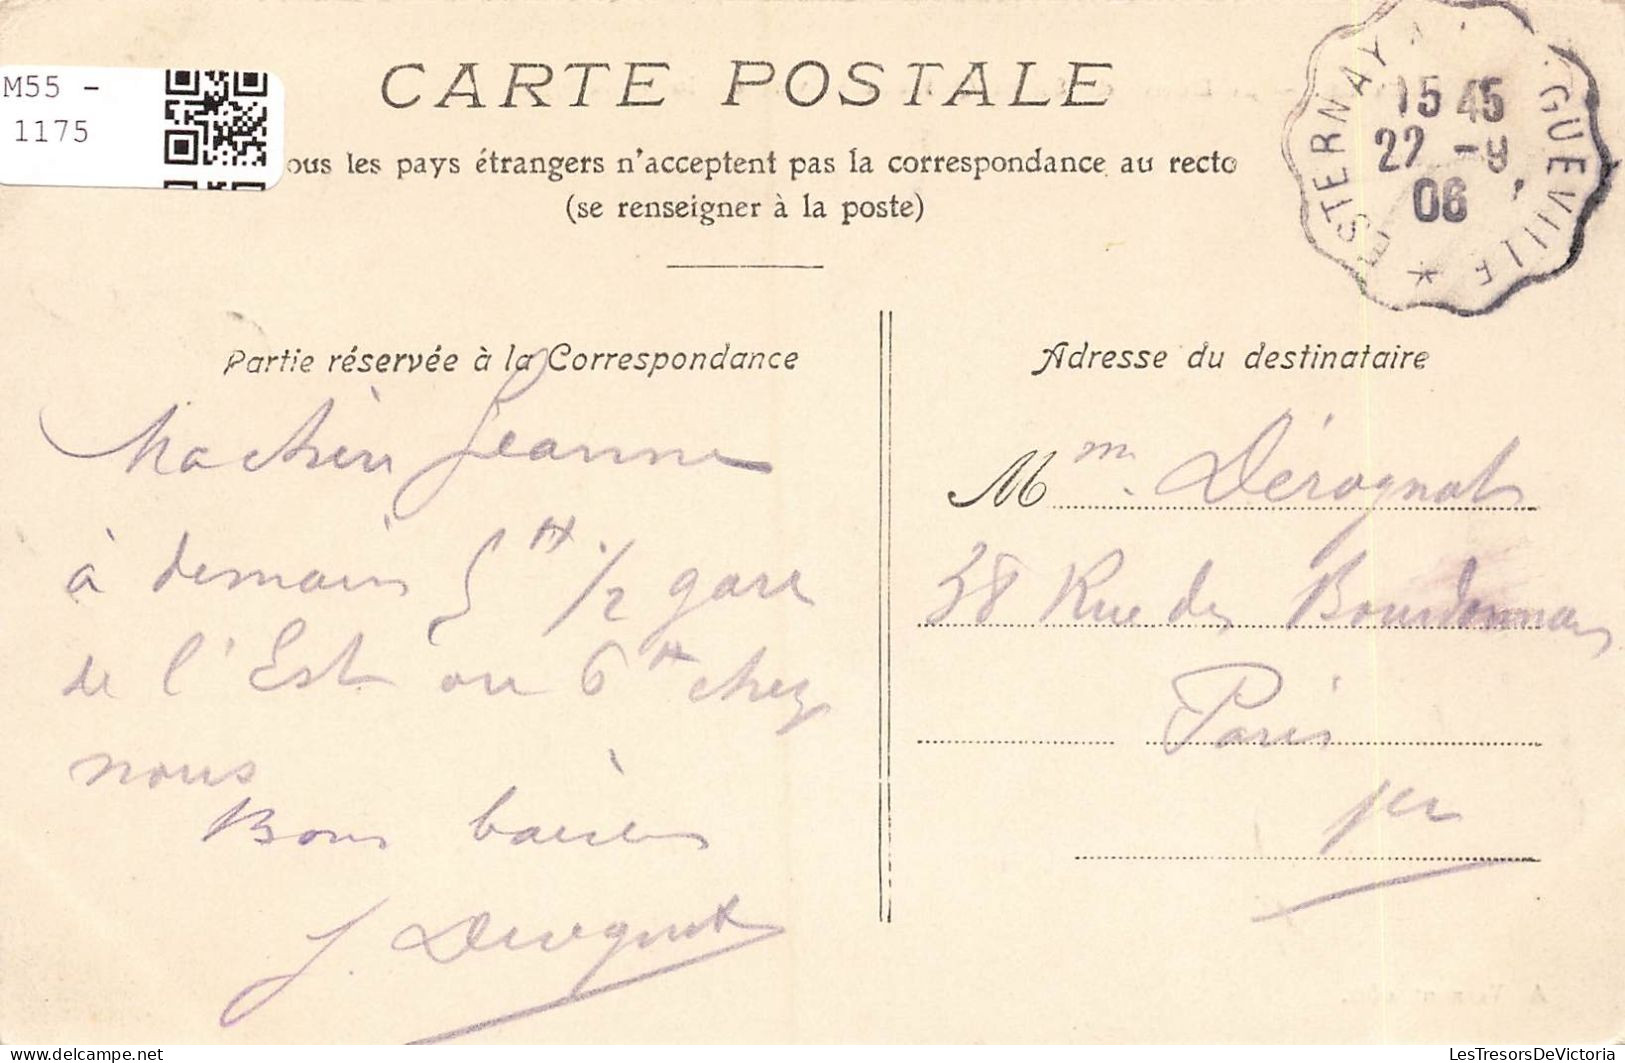 M55 -
1175
CARTE POSTALE
ous les pays étrangers n'acceptent pas la correspondance au recto
(se renseigner à la poste)
ESTERNAY
GUEVILLE *
15 45
27 -9
06
Partie réservée à la Correspondance
Ma chère Jeanne
à demain 5H 1/2 gare
de l'Est ou 6H chez
nous
Bons baisers
J. Derognat
Adresse du destinataire
Mm. Dérognat
38 Rue des Bourdonnais
Paris
1er
delcampe.net
LesTresorsDeVictoria